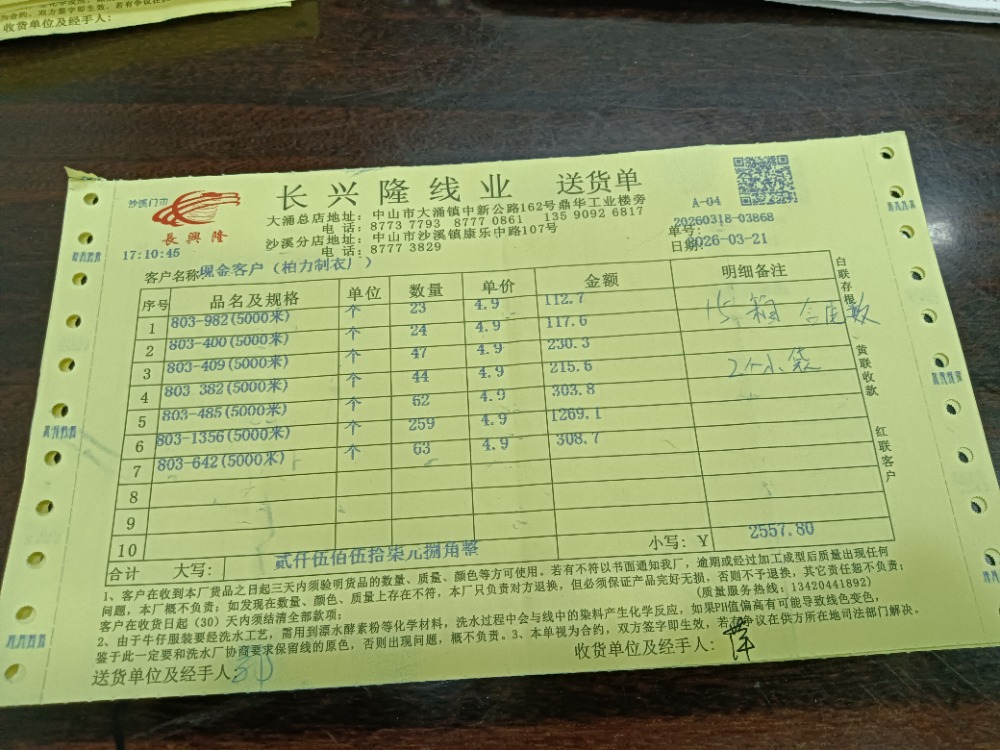 化学反应，如果
为合约，双方签字即生效，若有争议在供
收货单位及经手人：
沙溪门市
長興隆
17:10:45
长兴隆线业 送货单
大涌总店地址：中山市大涌镇中新公路162号鼎华工业楼旁
电话：8773 7793 8777 0861 135 9092 6817
沙溪分店地址：中山市沙溪镇康乐中路107号
电话：8777 3829
A-04
单号：20260318-03868
日期：2026-03-21
客户名称：现金客户（柏力制衣厂）
序号 品名及规格 单位 数量 单价 金额 明细备注
1 803-982(5000米) 个 23 4.9 112.7
2 803-400(5000米) 个 24 4.9 117.6
3 803-409(5000米) 个 47 4.9 230.3
4 803 382(5000米) 个 44 4.9 215.6
5 803-485(5000米) 个 62 4.9 303.8
6 803-1356(5000米) 个 259 4.9 1269.1
7 803-642(5000米) 个 63 4.9 308.7
8
9
10
15箱
2个小袋
合计 大写：贰仟伍佰伍拾柒元捌角整 小写：Y 2557.80
白联存根
黄联收款
红联客户
1、客户在收到本厂货品之日起三天内须验明货品的数量、质量、颜色等方可使用。若有不符以书面通知我厂，逾期或经过加工成型后质量出现任何
问题，本厂概不负责；如发现在数量、颜色、质量上存在不符，本厂只负责对方退换，但必须保证产品完好无损，否则不予退换，其它责任恕不负责；
客户在收货日起（30）天内须结清全部款项； (质量服务热线：13420441892)
2、由于牛仔服装要经洗水工艺，需用到漂水酵素粉等化学材料，洗水过程中会与线中的染料产生化学反应，如果PH值偏高有可能导致线色变色，
鉴于此一定要和洗水厂协商要求保留线的原色，否则出现问题，概不负责。3、本单视为合约，双方签字即生效，若有争议在供方所在地司法部门解决。
送货单位及经手人：
收货单位及经手人：萍